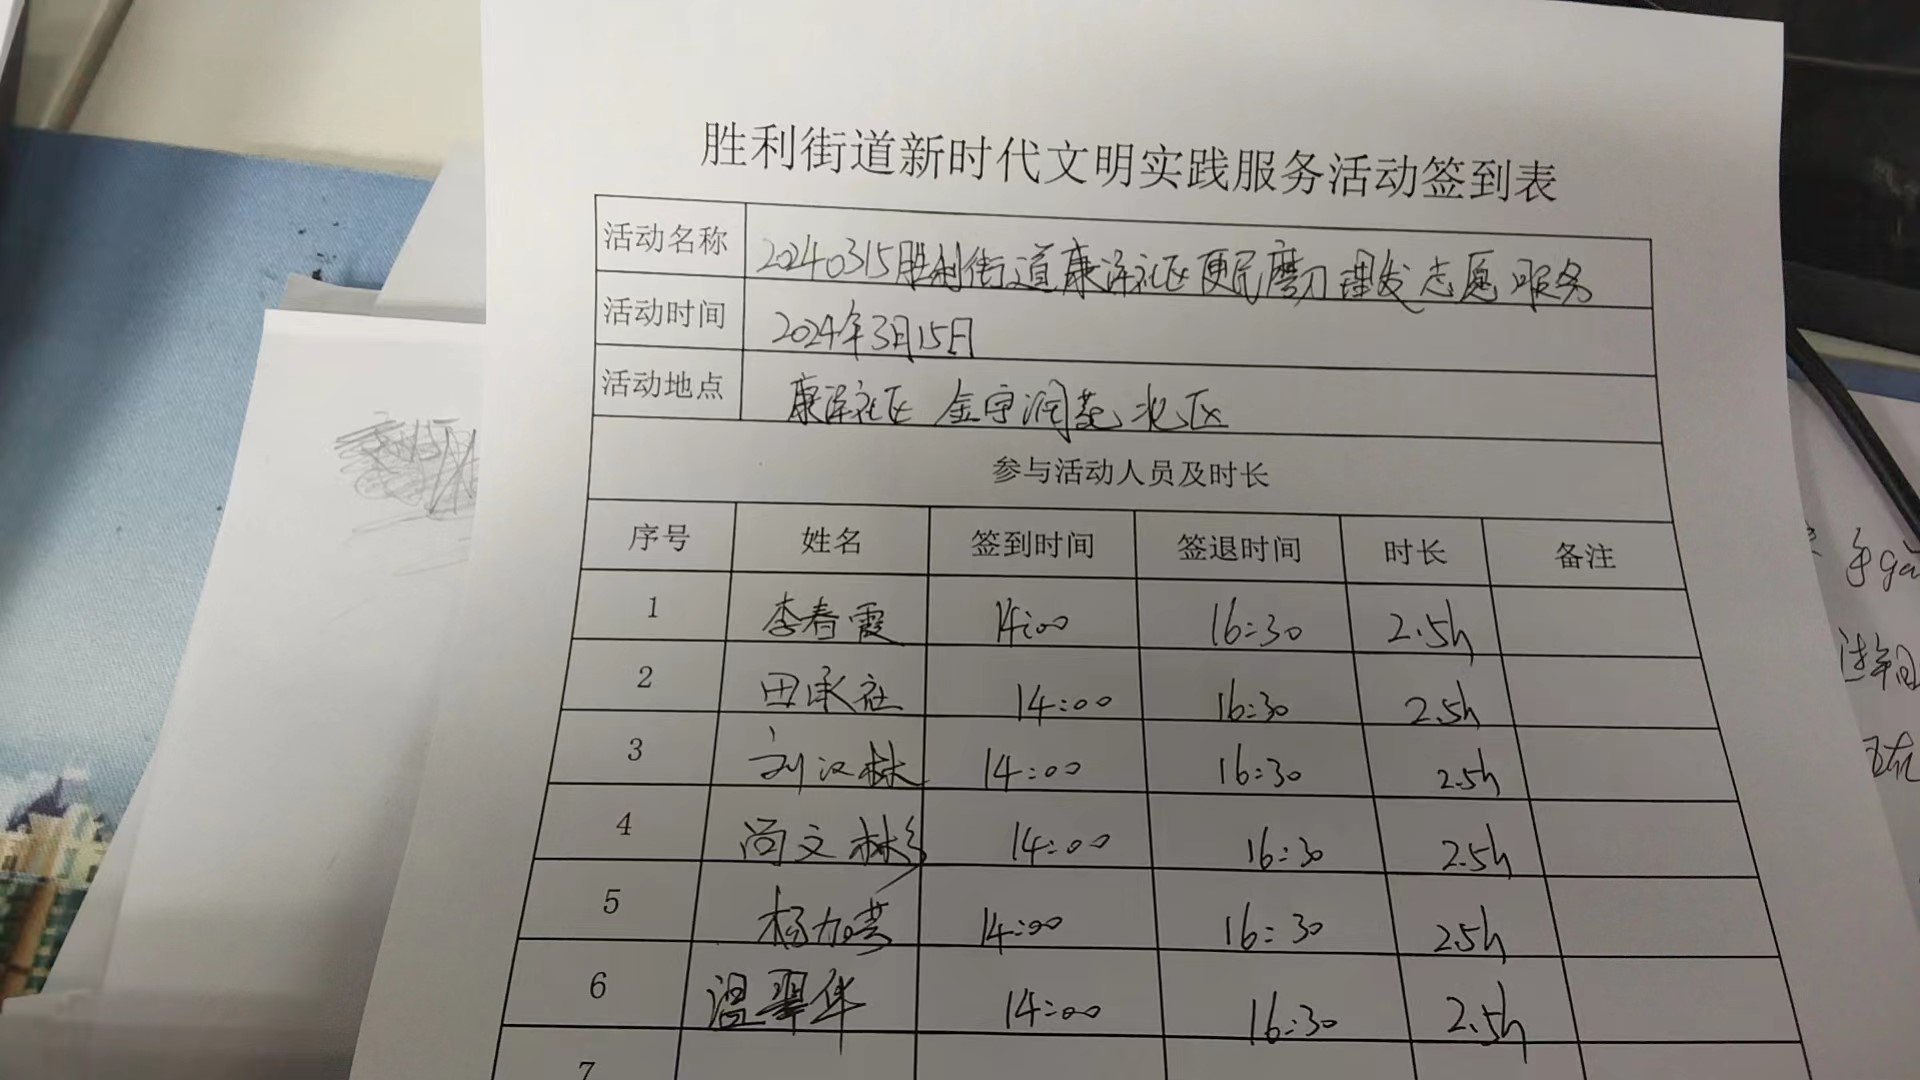 胜利街道新时代文明实践服务活动签到表
活动名称 20240315胜利街道康泽社区便民磨刀理发志愿服务
活动时间 2024年3月15日
活动地点 康泽社区 金宇润苑北区
参与活动人员及时长
序号 姓名 签到时间 签退时间 时长 备注
1 李春霞 14:00 16:30 2.5h
2 田承社 14:00 16:30 2.5h
3 刘汉林 14:00 16:30 2.5h
4 尚文彬 14:00 16:30 2.5h
5 杨加芸 14:00 16:30 2.5h
6 温翠华 14:00 16:30 2.5h
7